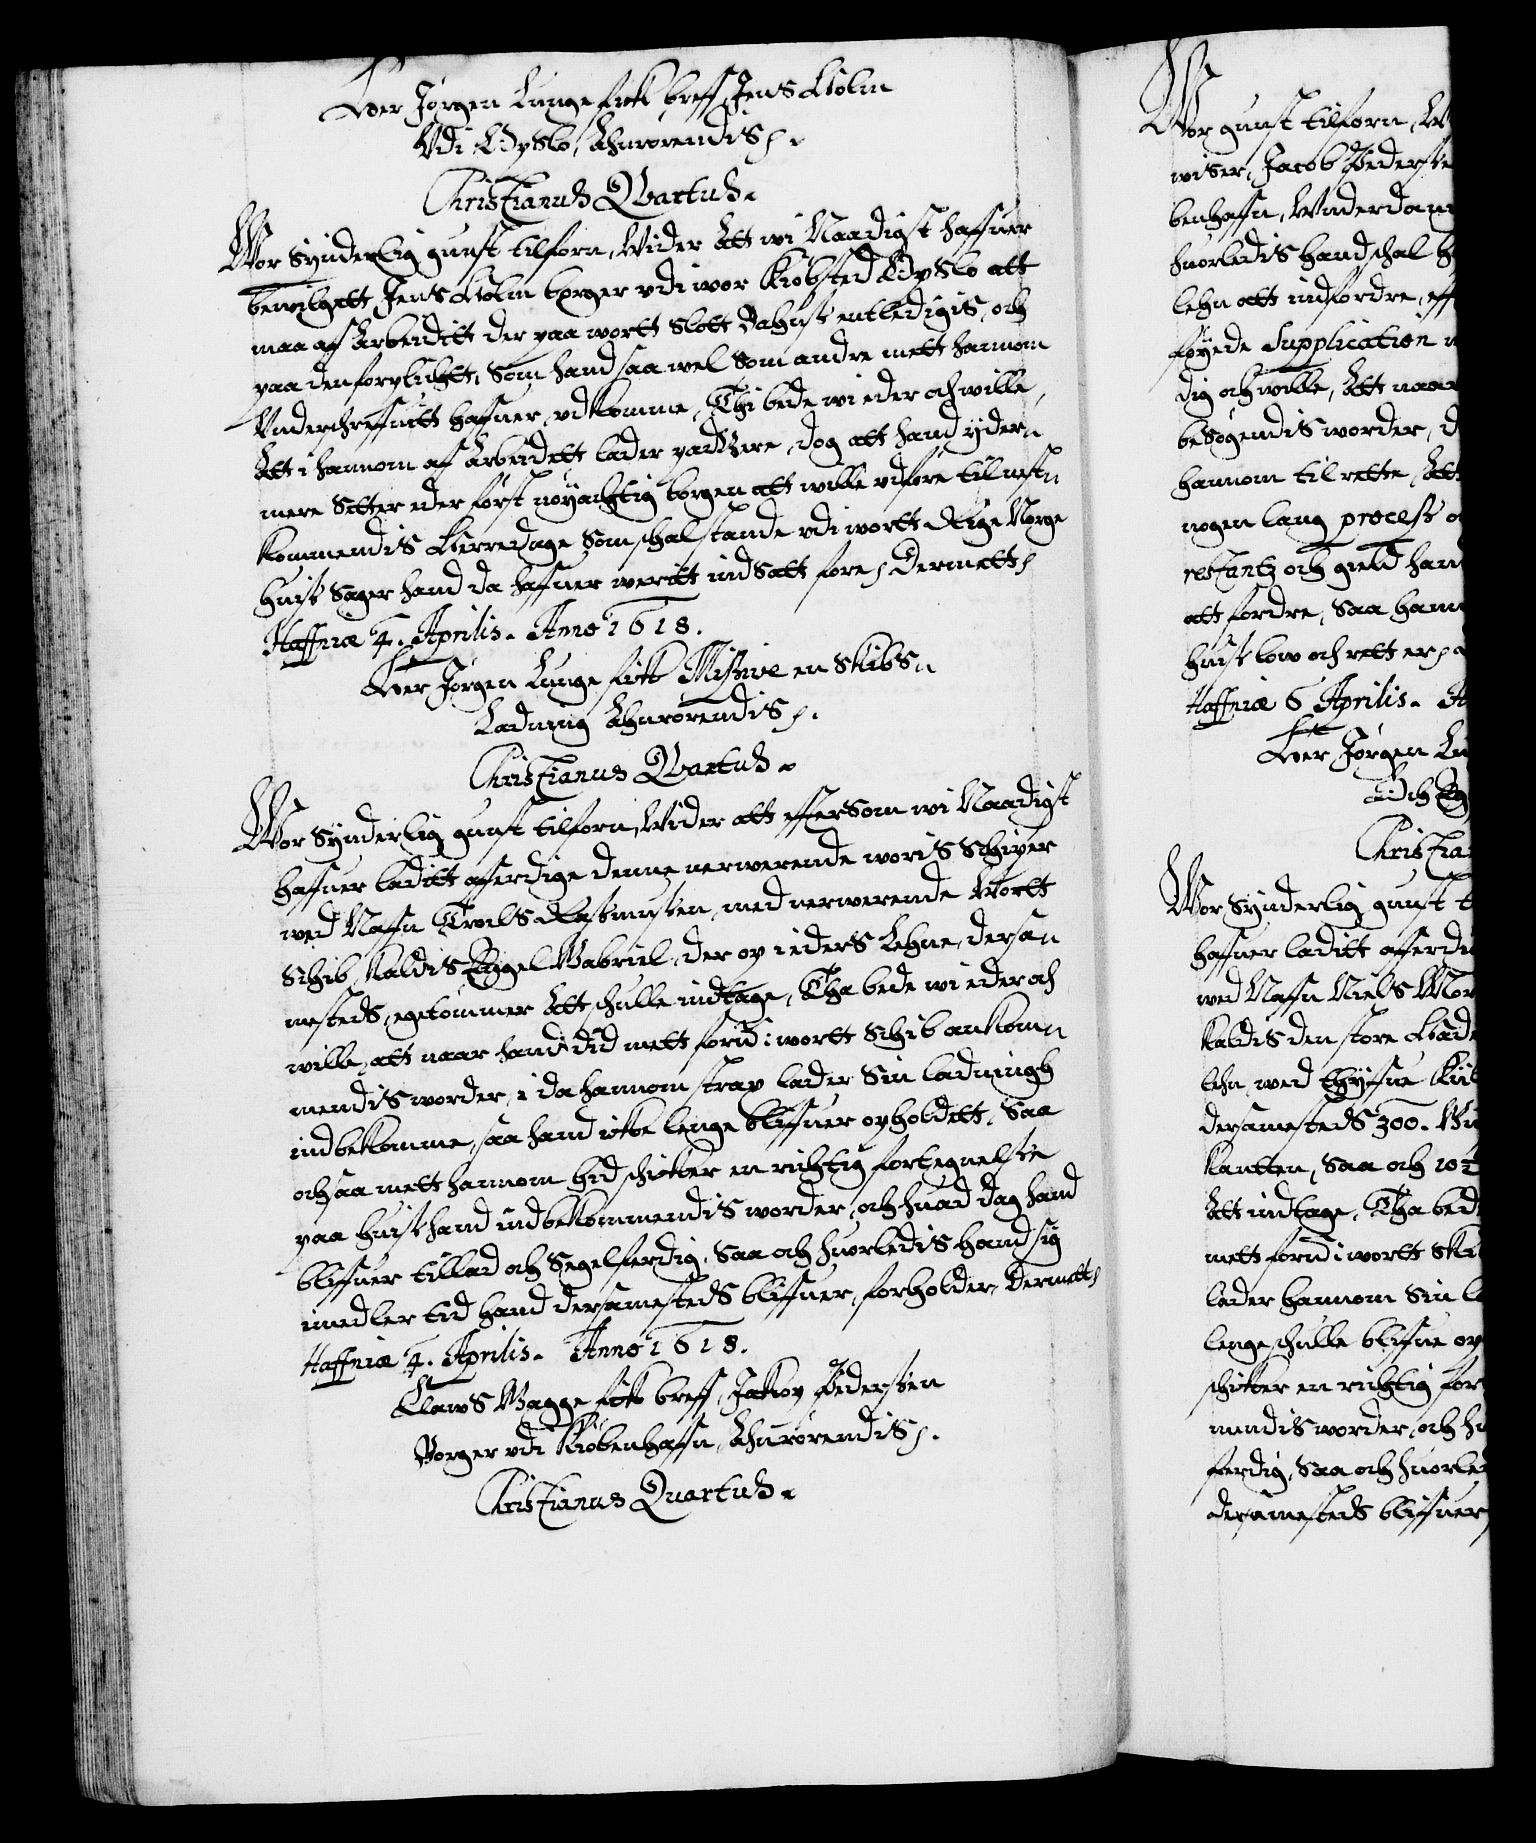 Her Jørgen Lunge fick breff, Jens Holm
Vdi Opslo, Anrørendis.
Christianus Quartus.
Wor synderlig gunst tilforn, Wider Att wi Naadigst haffuer
bewilgett Jens Holm borger vdi wor Kiøbsted Opslo att
maa aff Arbeiditt der paa wortt Slott Bahus entledigis, och
paa den forplicht, Som hand saa wel Som andre mett hannom
Vnderschreffuitt haffuer, vdkomme, Thi bede wi eder och wille,
Att i hannom aff Arbeidett lader passere, dog att hand yder-
mere Setter eder først nøyachtig borgen att wille vdføre til nest-
kommendis Herredage Som schal stande vdi wortt Rige Norge
huis Sager hand da haffuer weritt indsatt fore, Dermett
Haffniæ 4. Aprilis. Anno 1618.
Her Jørgen Lunge fick Missive en Skibs-
Ladning Anrørendis.
Christianus Quartus.
Wor Synderlig gunst tilforn, Wider att effterSom wi Naadigst
haffuer laditt afferdige denne nerwerende woris Schiper
wed Naffn Troels Rasmussen, med nerwerende Wortt
Schib, Kaldis Engel Gabriel, der op i eders Lehne, dersam-
mesteds, egetømmer Att schulle indtage, Tha bede wi eder och
wille, att naar hand did mett forn: wortt Schib ankom-
mendis worder, i da hannom strax lader Sin ladningh
indbekomme, saa hand icke lenge bliffuer opholdett, Saa
och saa mett hannom hid schicker en richtig fortegnelse
paa huis hand indbekommendis worder, och huad dag hand
bliffuer tillad och Segelferdig, Saa och huorledis hand sig
imedler tid hand dersamesteds bliffuer, forholder, Dermett
Haffniæ 4. Aprilis. Anno 1618.
Claws Gagge fick breff, Jakop Pedersen
Borger vdi Kiøbenhaffn, Anrørendis.
Christianus Quartus.
Wor gunst tilforn, W
wiser, Jacob Pederse
benhaffn, Vnderdan
huorledis hand schal h
lehn att indfordre, eff
føyede Supplication
dig och wille, Att naa
besøgendis worder,
hannom til rette, Att
nogen lang process
restantz och gield han
att fordre, Saa hann
huis low och rett er,
Haffniæ 6 Aprilis. A
Her Jørgen Lu
Christia
Wor Synderlig gunst t
haffuer laditt afferdi
wed Naffn Niels Mor
Kaldis den store
lehn wed
dersamesteds 300.
Kantten, Saa och 10
Att indtage, Tha bed
mett forn: wortt Ski
lader hannom Sin l
lenge schulle bliffue op
schicker en richtig for
mendis worder, och h
ferdig, Saa och huorle
dersamesteds bliffuer